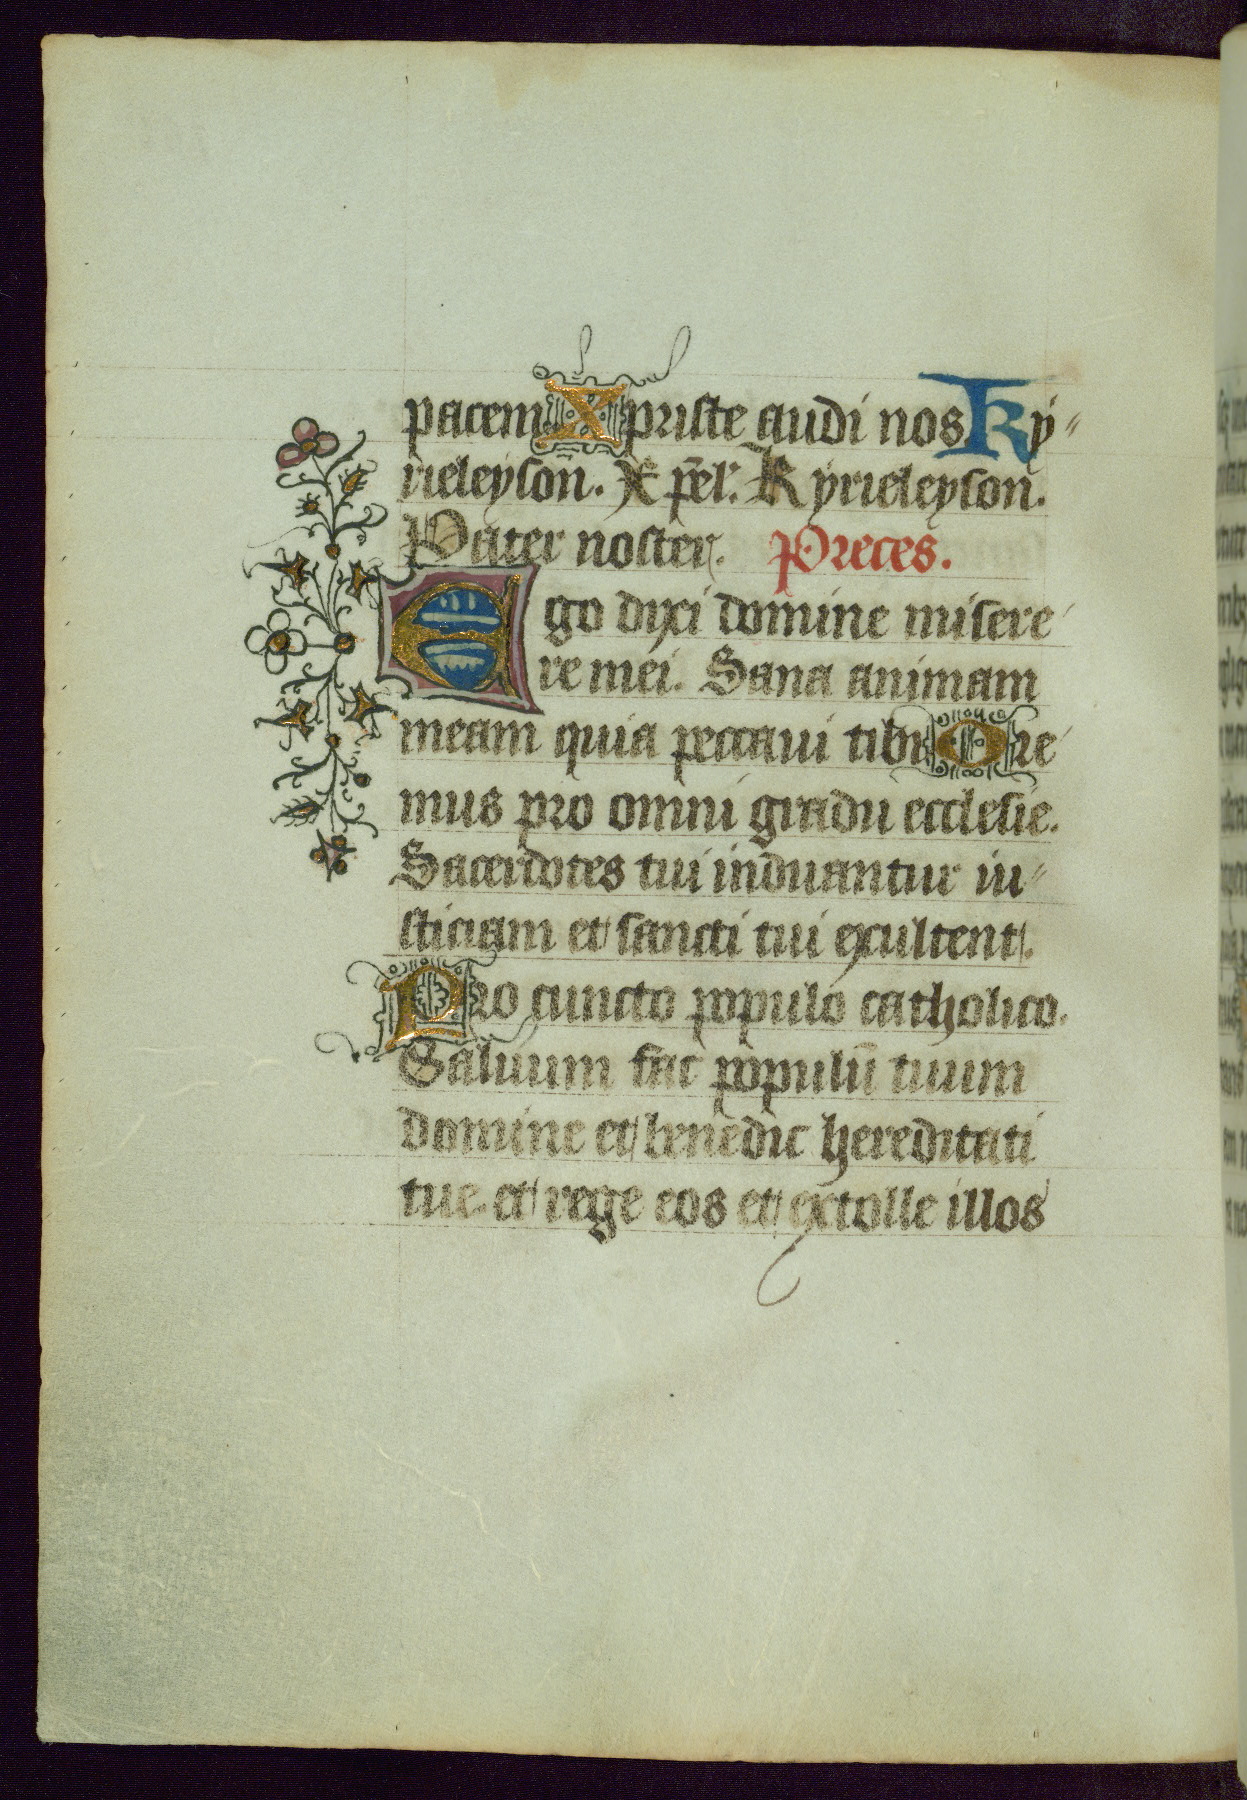 pacem Xpriste audi nos Ky-
rieleyson. Xp̄el'. Kyrieleyson.
Pater noster. Preces.
Ego dixi domine misere
re mei. Sana animam
meam quia peccaui tibi Ore
mus pro omni gradu ecclesie.
Sacerdotes tui induantur iu-
sticiam et sancti tui exultent.
Pro cuncto populo catholico.
Saluum fac populū tuum
domine et benedic hereditati
tue et rege eos et extolle illos